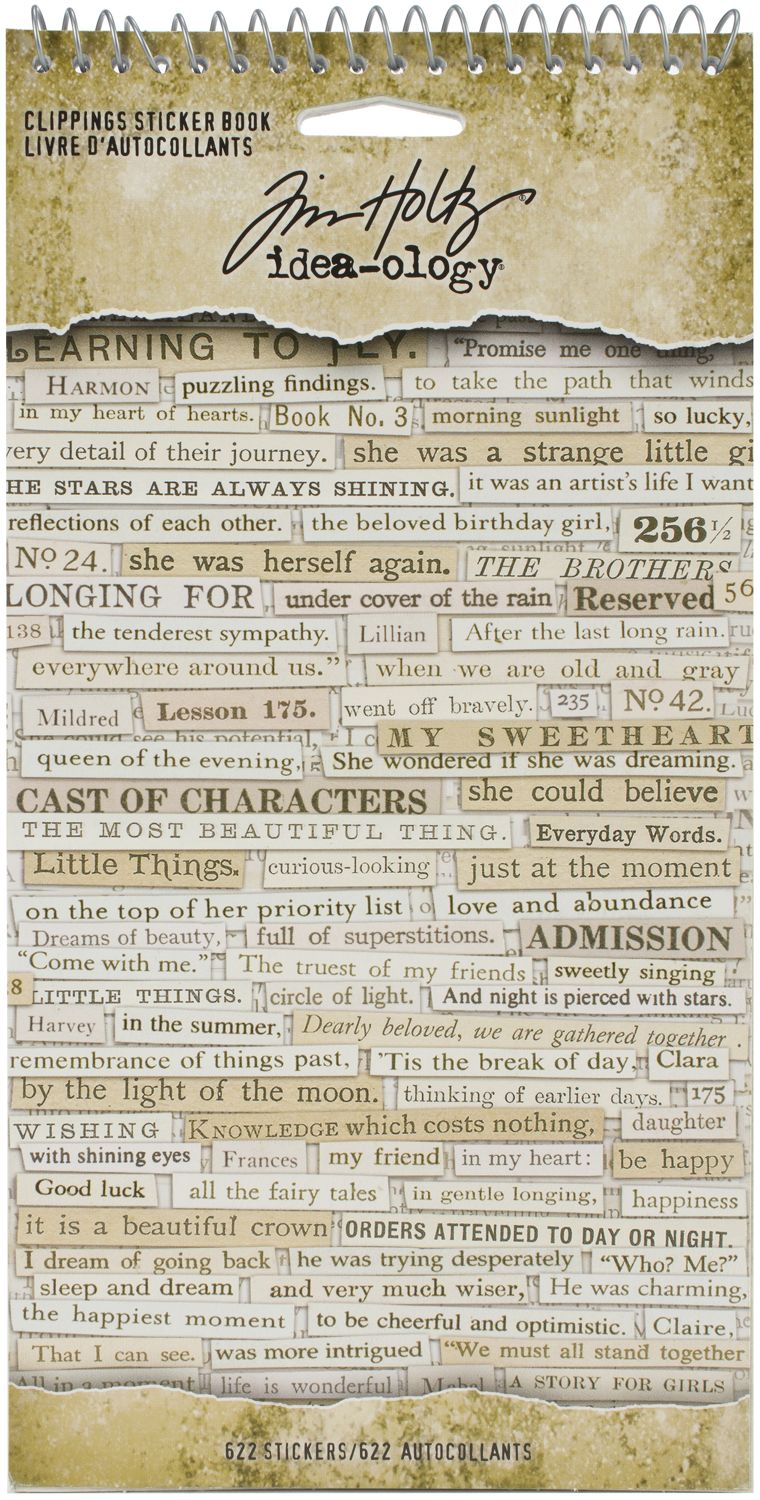 CLIPPINGS STICKER BOOK
LIVRE D'AUTOCOLLANTS
Tim Holtz
idea-ology
LEARNING TO FLY. "Promise me one thing,
HARMON puzzling findings. to take the path that winds
in my heart of hearts. Book No. 3 morning sunlight so lucky,
very detail of their journey. she was a strange little gi
HE STARS ARE ALWAYS SHINING. it was an artist's life I want
reflections of each other. the beloved birthday girl, 256 1/2
No 24. she was herself again. THE BROTHERS
LONGING FOR under cover of the rain Reserved 56
138 the tenderest sympathy. Lillian After the last long rain.
everywhere around us." when we are old and gray
Mildred Lesson 175. went off bravely. 235 No 42.
She could see his potential, MY SWEETHEART
queen of the evening, She wondered if she was dreaming.
CAST OF CHARACTERS she could believe
THE MOST BEAUTIFUL THING. Everyday Words.
Little Things. curious-looking just at the moment
on the top of her priority list love and abundance
Dreams of beauty, full of superstitions. ADMISSION
"Come with me." The truest of my friends sweetly singing
8 LITTLE THINGS. circle of light. And night is pierced with stars.
Harvey in the summer, Dearly beloved, we are gathered together
remembrance of things past, 'Tis the break of day, Clara
by the light of the moon. thinking of earlier days. 175
WISHING KNOWLEDGE which costs nothing, daughter
with shining eyes Frances my friend in my heart: be happy
Good luck all the fairy tales in gentle longing, happiness
it is a beautiful crown ORDERS ATTENDED TO DAY OR NIGHT.
I dream of going back he was trying desperately "Who? Me?"
sleep and dream and very much wiser, He was charming,
the happiest moment to be cheerful and optimistic. Claire,
That I can see. was more intrigued "We must all stand together
All in a moment life is wonderful Mabel A STORY FOR GIRLS
622 STICKERS/622 AUTOCOLLANTS